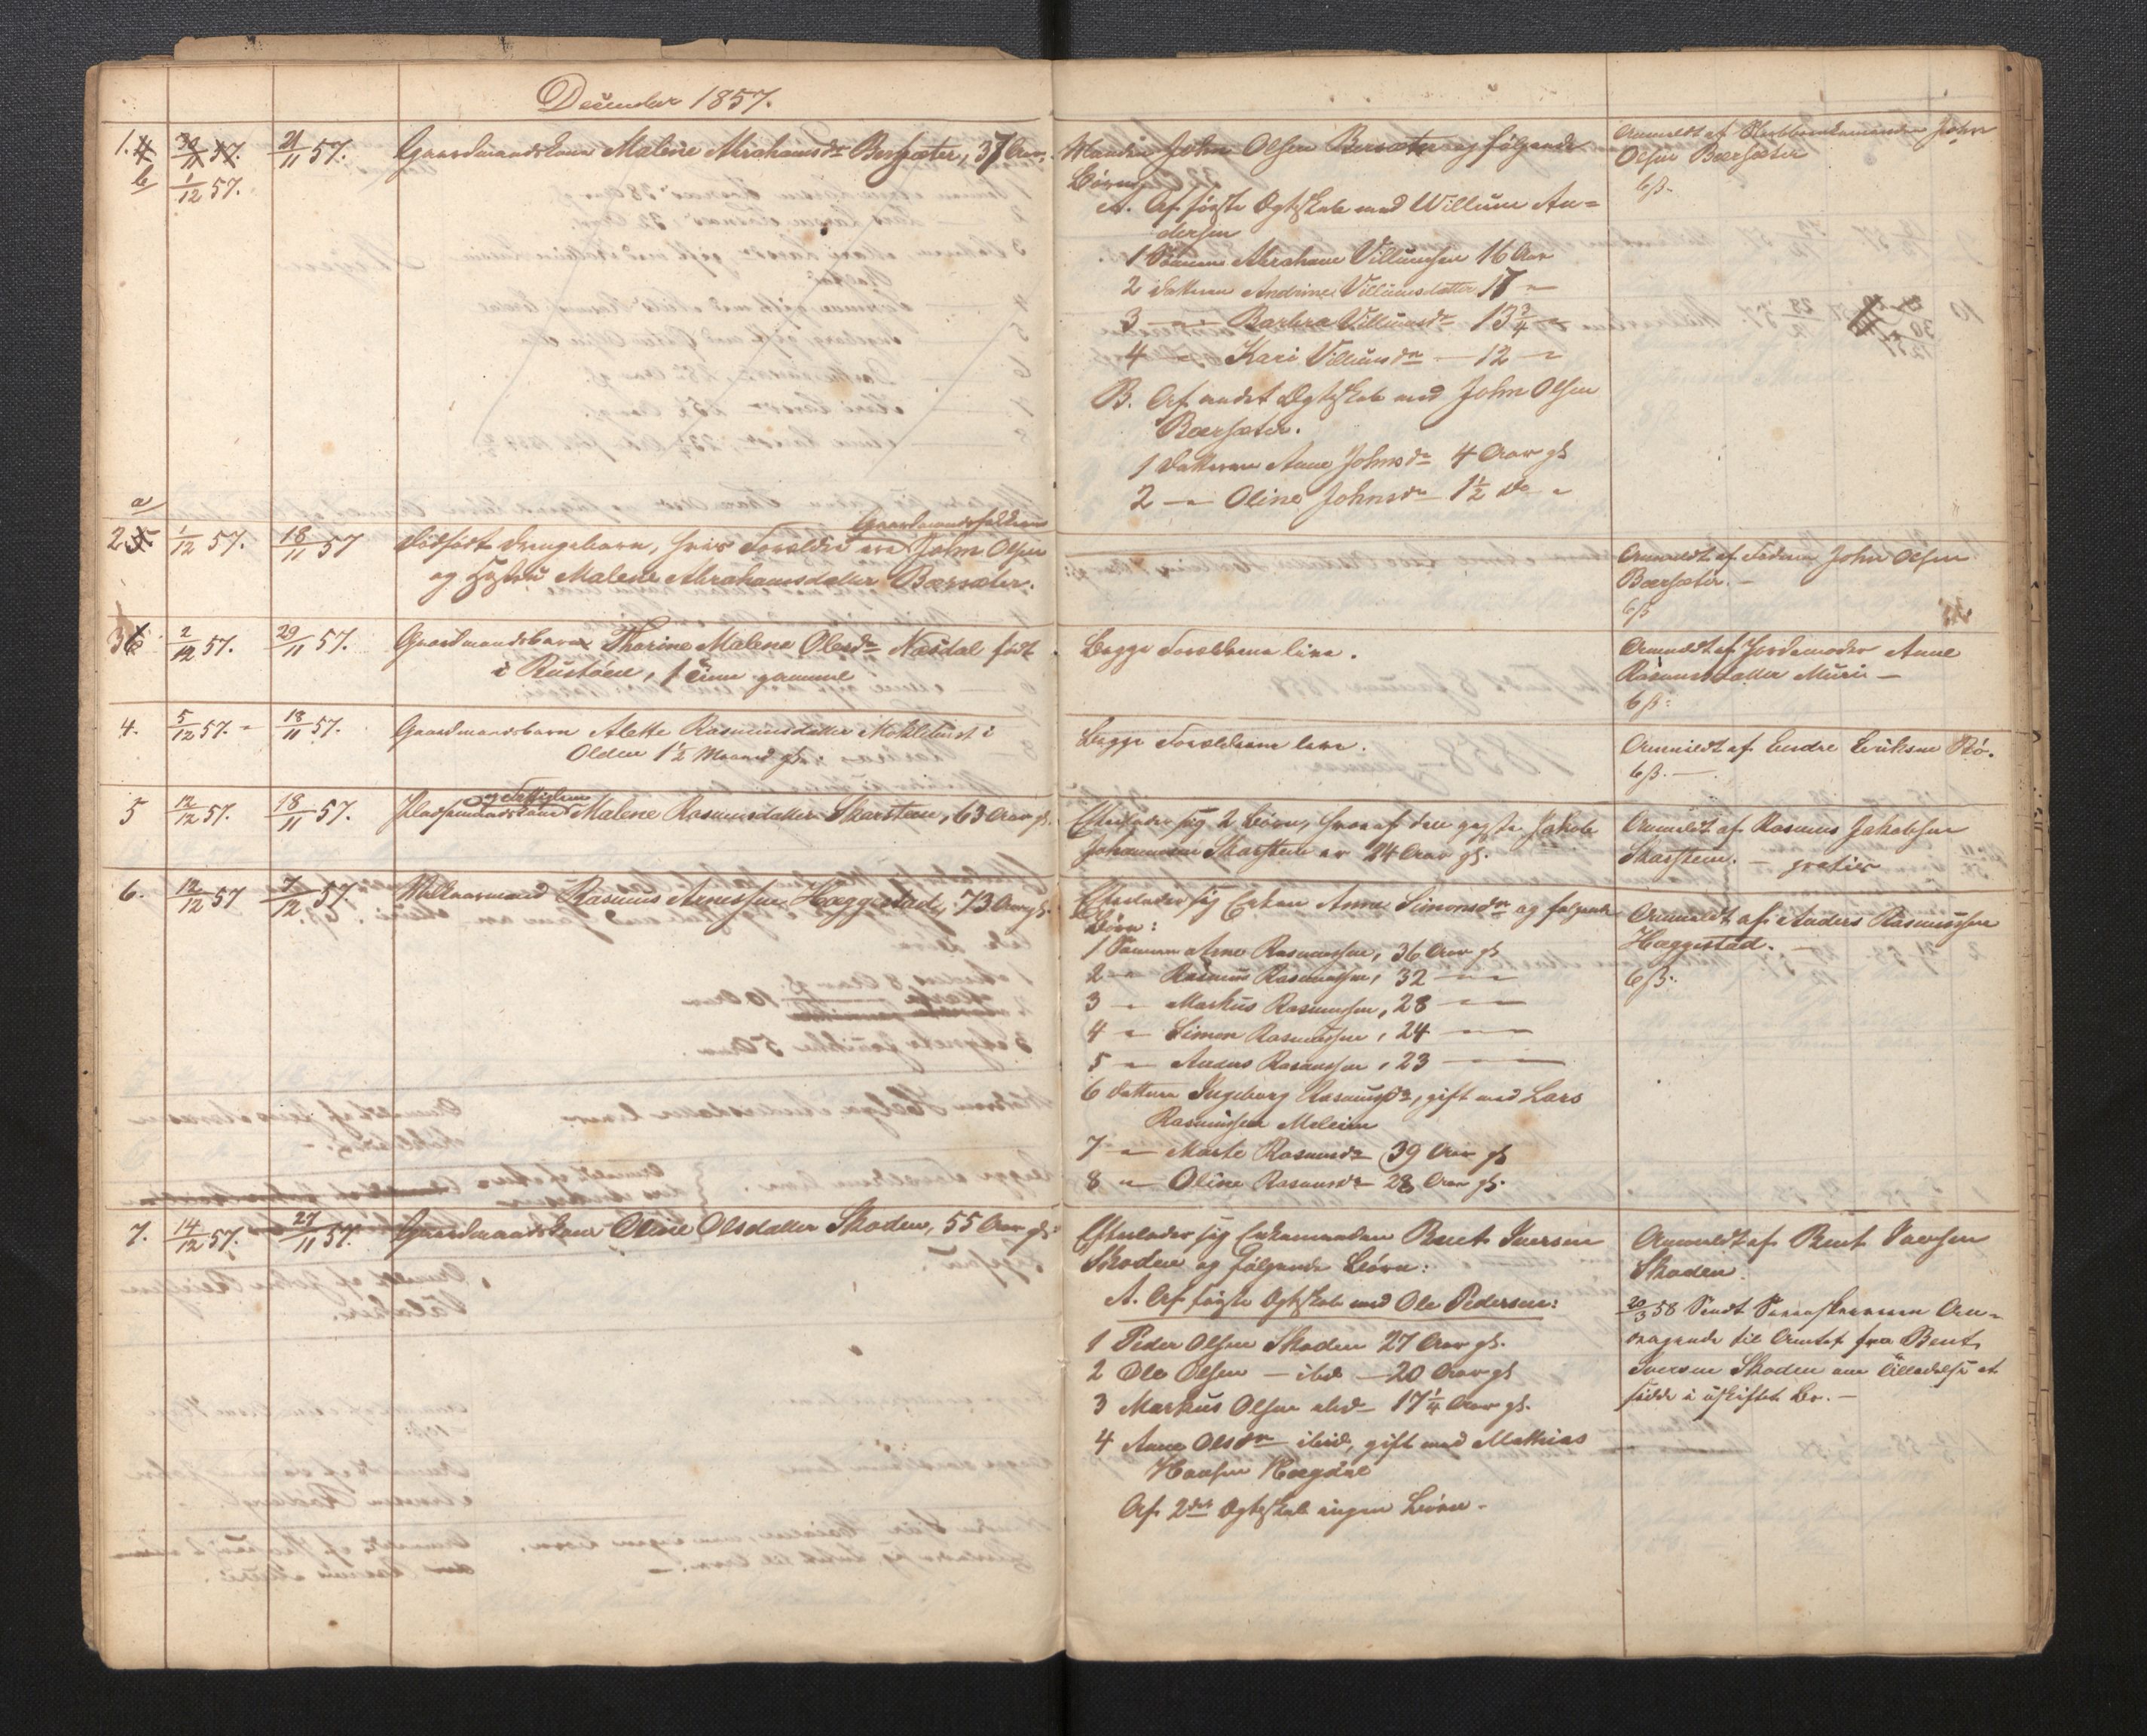 December 1857.
1. 4 30/11 57. 21/11 57. Gaardmandskone Malene Abrahamsdr Bersæter, 37 Aar,
b 1/12 57.
Manden John Olsen Bersæter og følgende
Børn:
A. Af første Ægteskab med Willum An=
dersen
1 Sønnen Abraham Villumsen 16 Aar
2 Datteren Andrine Villumsdatter 17 "
3 — " Barbra Villumsdr 13 3/4 "
4 — Kari Villumsdr — 12 "
B. Af andet Ægteskab med John Olsen
Bærsæter.
1 Datteren Anne Johnsdr 4 Aar gl
2 — " Oline Johnsdr 1 1/2 do "
Anmeldt af John
Olsen Bærsæter
6 ß.
a
2 5 1/12 57. 18/11 57 Dødfødt Drengebarn, hvis Forældre ere Gaardmandsfolkene John Olsen
og Hustru Malene Abrahamsdatter Bærsæter.
Anmeldt af Faderen John Olsen
Bærsæter. —
6 ß
3 6 2/12 57. 29/11 57. Gaardmandsbarn Thorine Malene Olesdr Næsdal født
i Rustøen, 1 gammel
Begge Forældrene leve.
Anmeldt af Jordemoder Anne
Rasmusdatter Muri —
6 ß.
4. 5/12 57. — 18/11 57. Gaardmandsbarn Alette Rasmusdatter i
Olden 1 1/2 Maaned gl.
Begge Forældrene leve.
Anmeldt af Endre Eriksen Bø.
6 ß. —
5 12/12 57. 18/11 57. Pladsemandskone og Fattiglem Malene Rasmusdatter Skarsteen, 63 Aar gl.
Efterlader sig 2 Børn, hvoraf den yngste Jakob
Johannesen Skarsteen er 24 Aar gl.
Anmeldt af Rasmus Jakobsen
Skarsteen. — gratis
6. 12/12 57 7/12 57. Vilkaarsmand Rasmus Arnessen Hæggestad, 73 Aar gl.
Efterlader sig Enken Anne Simonsdr og følgende
Børn:
1 Sønnen Arne Rasmussen, 36 Aar gl
2 — " Rasmus Rasmussen, 32 — "
3 " Markus Rasmussen, 28 — "
4 " Simon Rasmussen, 24 — "
5 " Anders Rasmussen, 23 —
6 Datteren Ingeborg Rasmusdr, gift med Lars
Rasmussen Meleim
7 — " Marte Rasmusdr 39 Aar gl
8 " Oline Rasmusdr 28 Aar gl.
Anmeldt af Anders Rasmussen
Hæggestad. —
6 ß.
7. 14/12 57. 27/11 57. Gaardmandskone Oline Olsdatter Skaden, 55 Aar gl.
Efterlader sig Enkemanden Bent Iversen
Skaden og følgende Børn:
A. Af første Ægteskab med Ole Pedersen:
1 Peder Olsen Skaden 27 Aar gl.
2 Ole Olsen — ibid — 20 Aar gl
3 Markus Olsen ibid — 17 1/4 Aar gl.
4 Anne Olsdr ibid, gift med Mathias
Hansen
Af 2det Ægteskab ingen Børn.
Anmeldt af Bent Iversen
Skaden.
20/3 58 Sendt An=
dragende til Amtet fra Bent
Iversen Skaden om Tilladelse at
sidde i uskiftet Bo. —